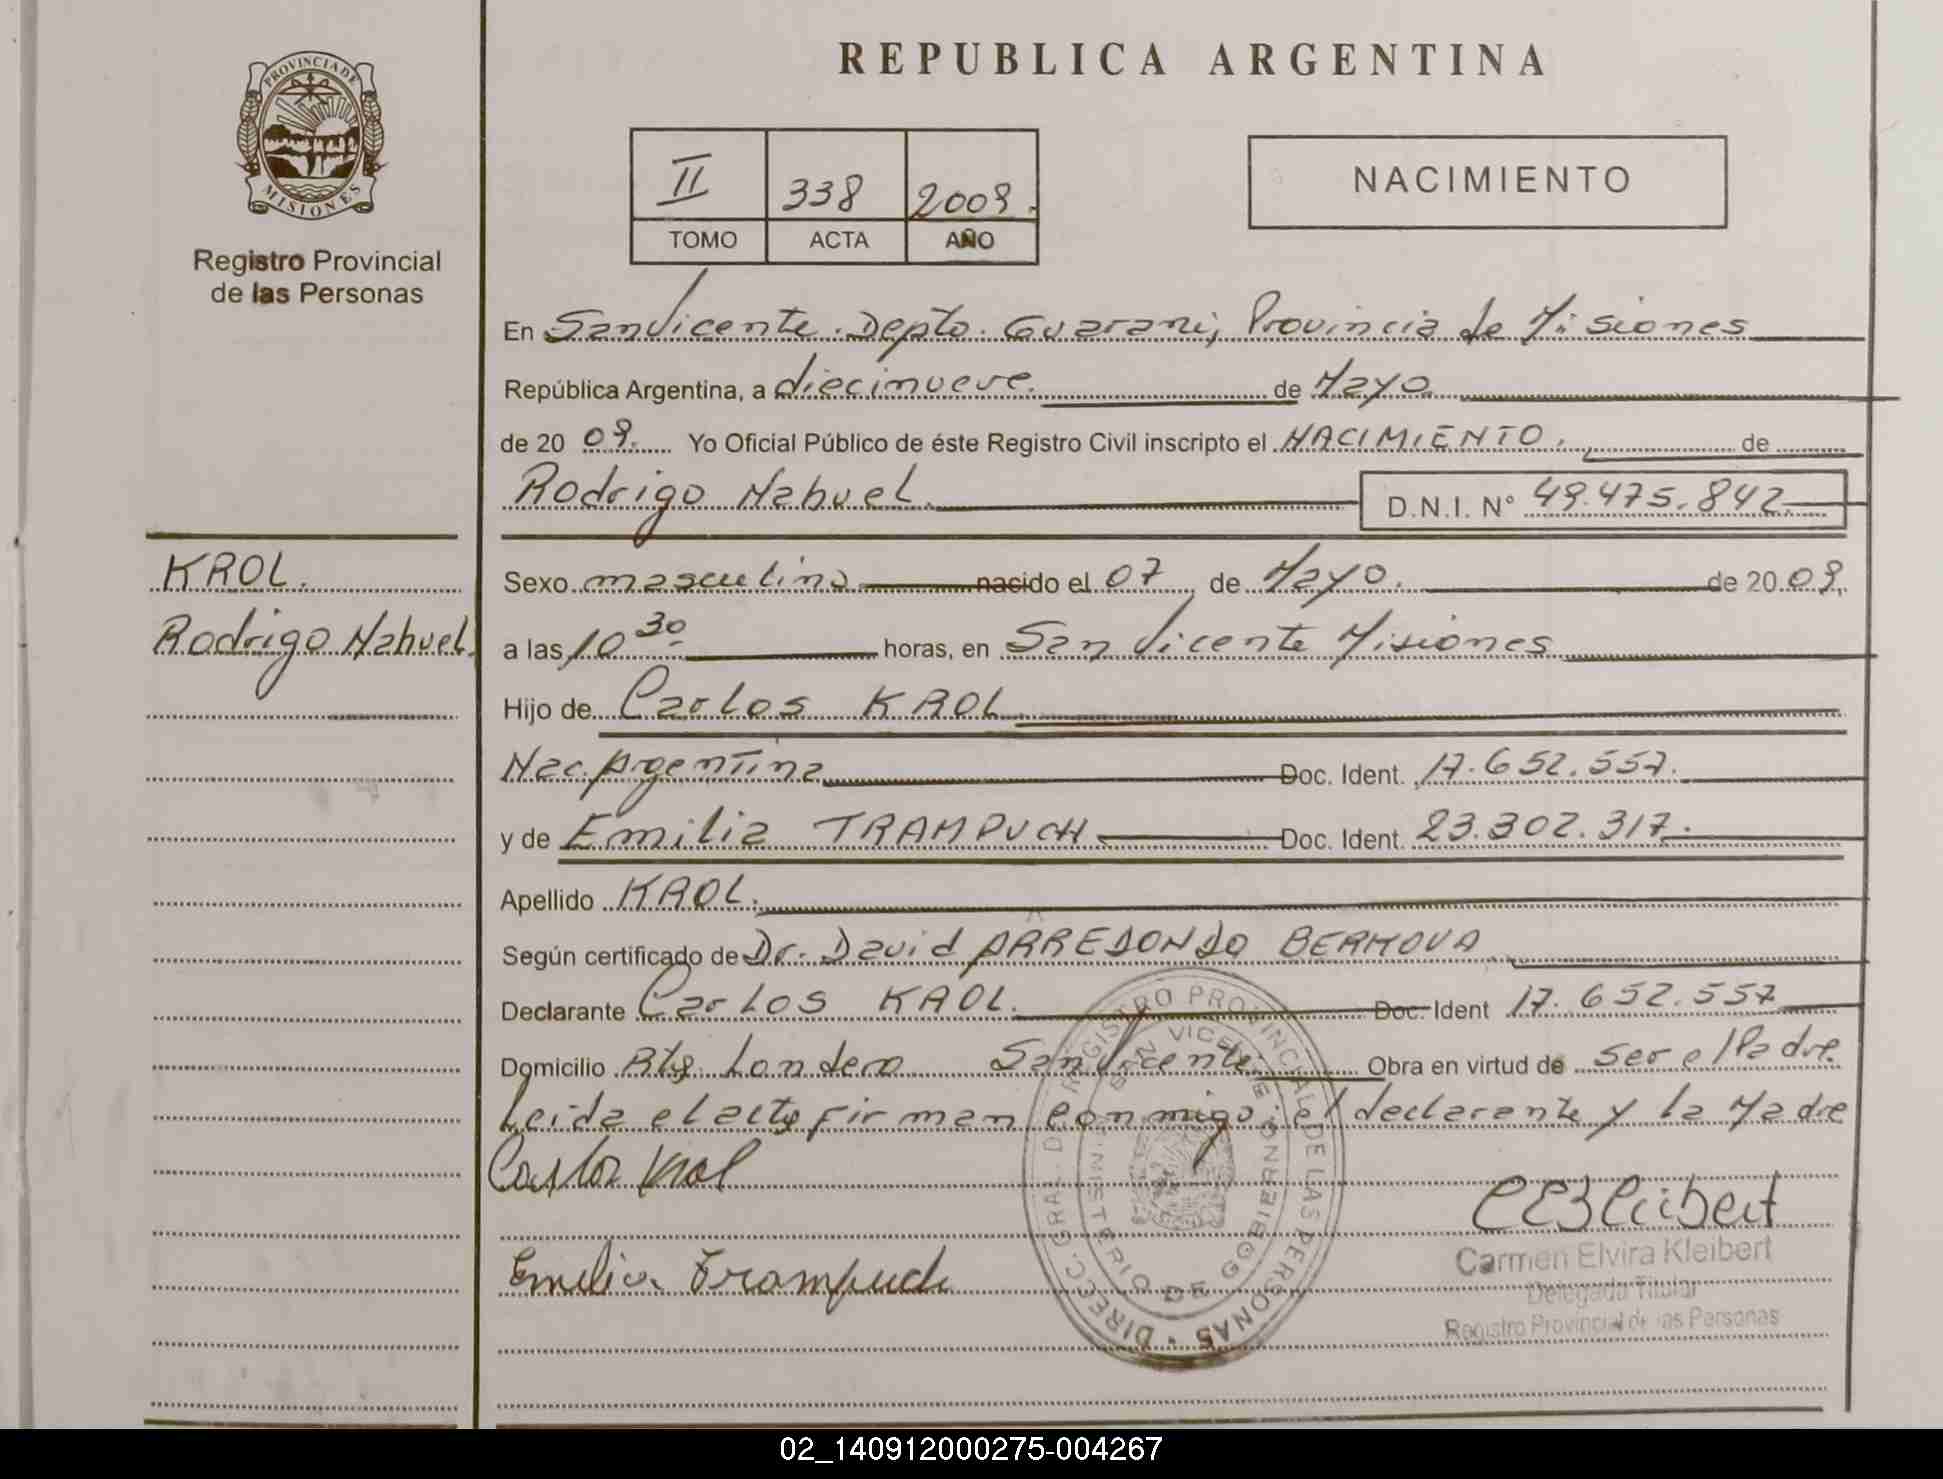 PROVINCIA DE MISIONES
Registro Provincial
de las Personas
KROL.
Rodrigo Nahuel.
REPUBLICA ARGENTINA
II 338 2009.
TOMO ACTA AÑO
NACIMIENTO
En San Vicente. Depto. Guarani, Provincia de Misiones
República Argentina, a diecinueve. de Mayo
de 20 09. Yo Oficial Público de éste Registro Civil inscripto el NACIMIENTO. de
Rodrigo Nahuel. D.N.I. N° 49.475.842
Sexo masculino nacido el 07 de Mayo. de 20 09.
a las 10 30 horas, en San Vicente Misiones
Hijo de Carlos KROL
Nac. Argentina Doc. Ident. 17.652.557.
y de Emilia TRAMPUCH Doc. Ident. 23.302.317.
Apellido KROL.
Según certificado de Dr. David ARREDONDO
Declarante Carlos KROL. Doc. Ident 17.652.557
Domicilio Londero San Vicente Obra en virtud de ser el Padre.
Leida el acta firman conmigo el declarante y la Madre
Carlos Krol
Emilia Trampuch
DIREC. GRAL. DE REGISTRO PROVINCIAL DE LAS PERSONAS
SAN VICENTE
MINISTERIO DE GOBIERNO
Carmen Elvira Kleibert
Delegada Titular
Registro Provincial de las Personas
02_140912000275-004267